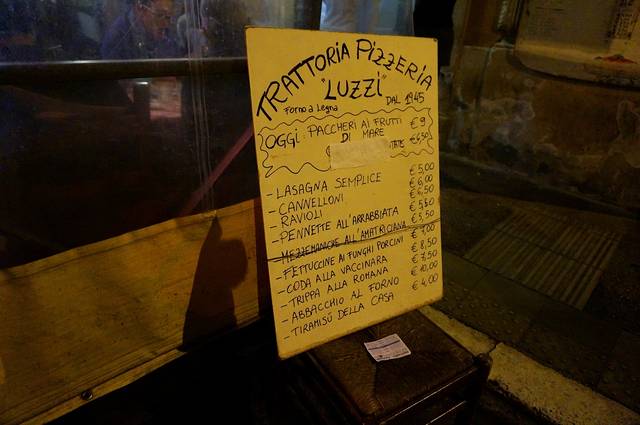 TRATTORIA PIZZERIA
"LUZZI"
Forno a Legna DAL 1945
OGGI: PACCHERI AI FRUTTI € 9
DI MARE
€ 6,50
- LASAGNA SEMPLICE € 5,00
- CANNELLONI € 6,00
- RAVIOLI € 6,50
- PENNETTE ALL'ARRABBIATA € 5,50
- MEZZEMANICHE ALL'AMATRICIANA € 5,50
- FETTUCCINE AI FUNGHI PORCINI € 7,00
- CODA ALLA VACCINARA € 8,50
- TRIPPA ALLA ROMANA € 7,50
- ABBACCHIO AL FORNO € 10,00
- TIRAMISÚ DELLA CASA € 4,00